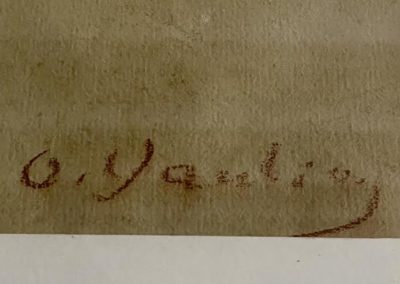 O. Yaulin